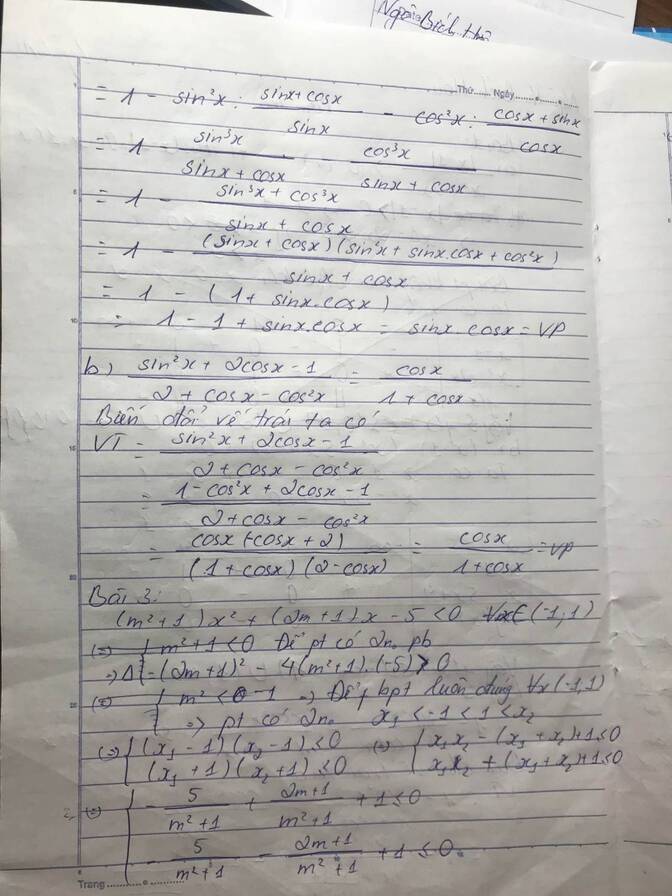 Ngô Bích Hà
Thứ ...... Ngày ......
= 1 - sin²x : (sinx + cosx)/sinx - cos²x : (cosx + sinx)/cosx
= 1 - sin³x/(sinx + cosx) - cos³x/(sinx + cosx)
= 1 - (sin³x + cos³x)/(sinx + cosx)
= 1 - (sinx + cosx)(sin²x + sinx.cosx + cos²x)/(sinx + cosx)
= 1 - (1 + sinx.cosx)
= 1 - 1 + sinx.cosx = sinx.cosx = VP
b) (sin²x + 2cosx - 1)/(2 + cosx - cos²x) = cosx/(1 + cosx)
Biến đổi vế trái ta có
VT = (sin²x + 2cosx - 1)/(2 + cosx - cos²x)
= (1 - cos²x + 2cosx - 1)/(2 + cosx - cos²x)
= cosx(-cosx + 2)/((1 + cosx)(2 - cosx)) = cosx/(1 + cosx) = VP
Bài 3:
(m² + 1)x² + (2m + 1)x - 5 < 0 ∀x∈(-1,1)
(=) { m² + 1 < 0 Để pt có 2n₀ pb
=> Δ = (2m + 1)² - 4(m² + 1).(-5) > 0
(=) { m² < -1 => Để bpt luôn đúng ∀x(-1,1)
=> pt có 2n₀ x₁ < -1 < 1 < x₂
(=) { (x₁ - 1)(x₂ - 1) ≤ 0 (=) { x₁x₂ - (x₁ + x₂) + 1 ≤ 0
(x₁ + 1)(x₂ + 1) ≤ 0 x₁x₂ + (x₁ + x₂) + 1 ≤ 0
(=) { - 5/(m² + 1) + (2m + 1)/(m² + 1) + 1 ≤ 0
- 5/(m² + 1) - (2m + 1)/(m² + 1) + 1 ≤ 0.
Trang ......